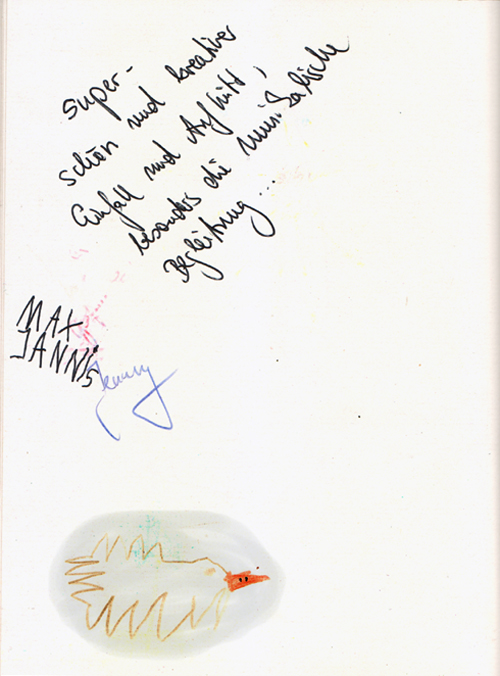 super-
schön und kreativer
Einfall und Auftritt,
besonders die musikalische
Begleitung...
MAX
JANNIS
Jenny